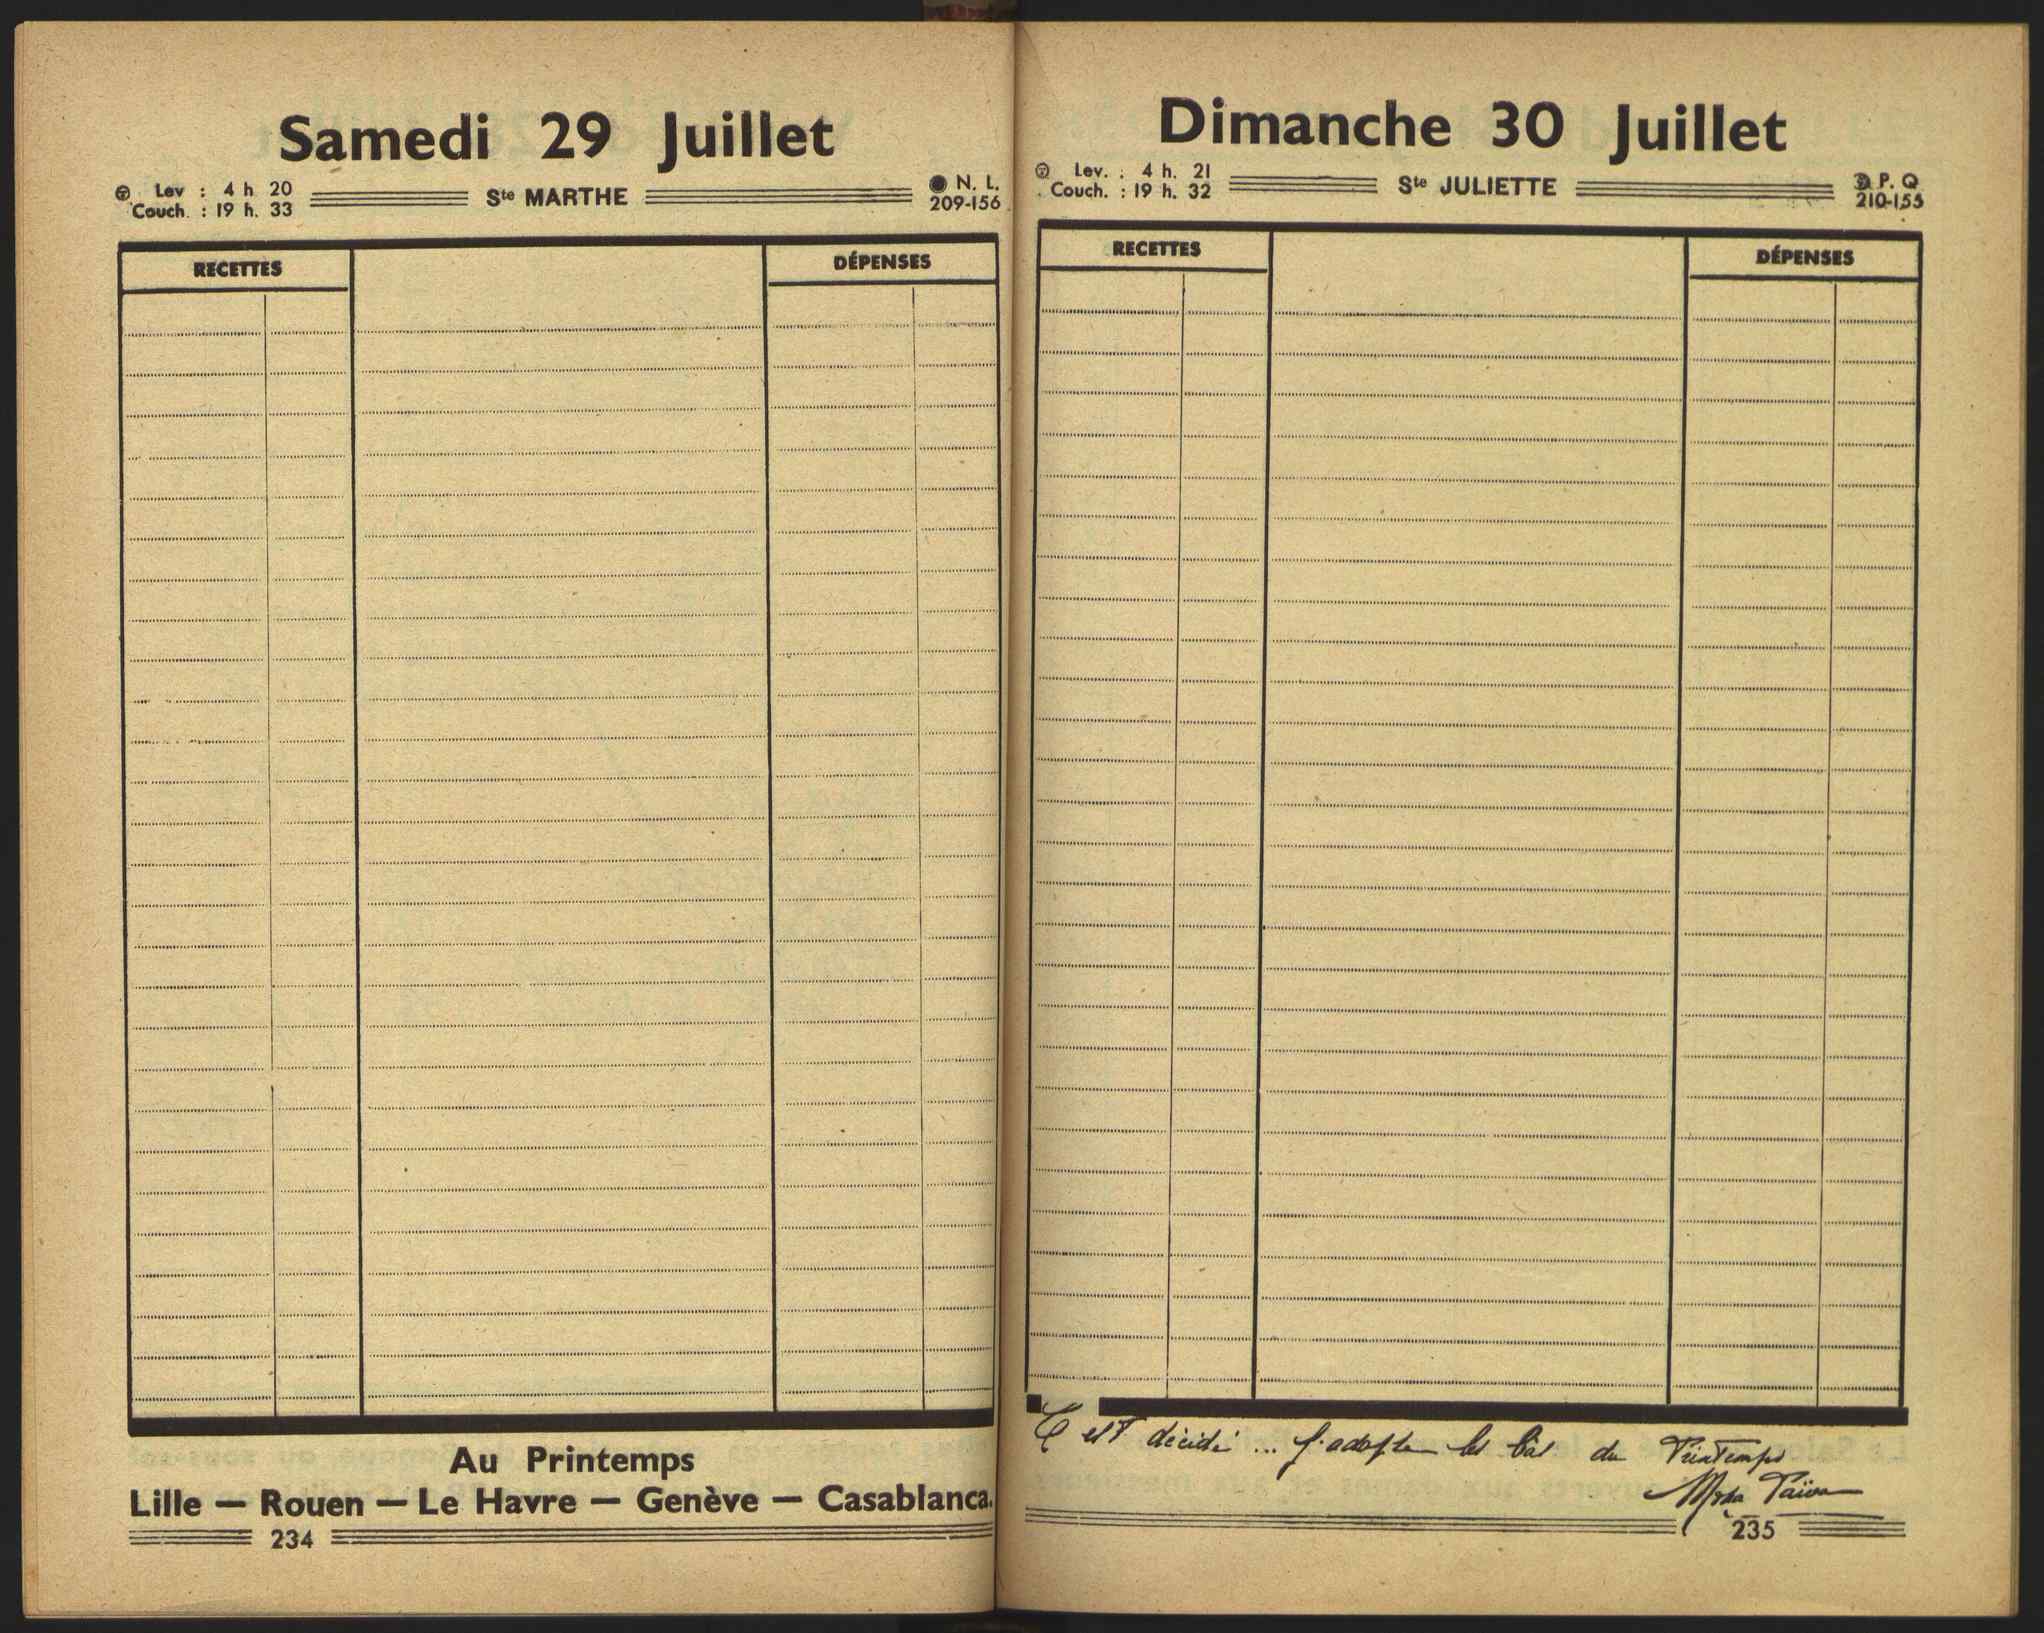 Samedi 29 Juillet
Lev : 4 h 20
Couch. : 19 h. 33
Ste MARTHE
N. L.
209-156
RECETTES
DÉPENSES
Au Printemps
Lille — Rouen — Le Havre — Genève — Casablanca.
234
Dimanche 30 Juillet
Lev. : 4 h. 21
Couch. : 19 h. 32
Ste JULIETTE
P. Q
210-155
RECETTES
DÉPENSES
C'est décidé ... j'adopte les bas du Printemps
235